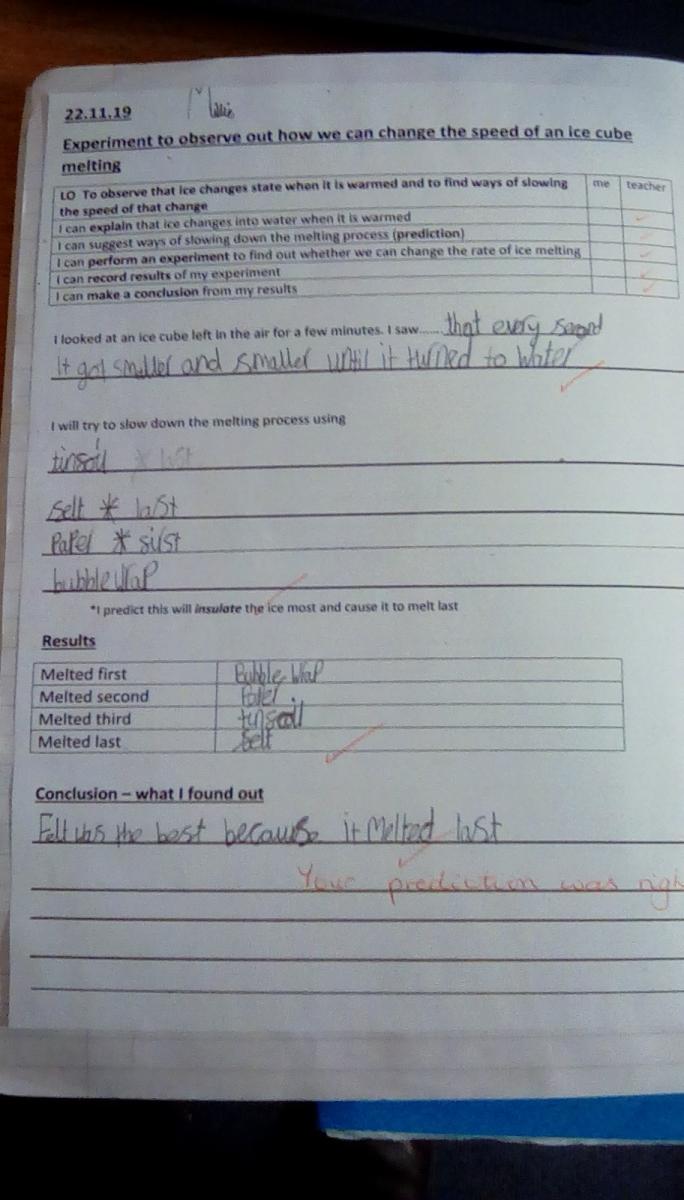 22.11.19
Experiment to observe out how we can change the speed of an ice cube
melting
LO To observe that ice changes state when it is warmed and to find ways of slowing
the speed of that change
me teacher
I can explain that ice changes into water when it is warmed
I can suggest ways of slowing down the melting process (prediction)
I can perform an experiment to find out whether we can change the rate of ice melting
I can record results of my experiment
I can make a conclusion from my results
I looked at an ice cube left in the air for a few minutes. I saw...... that every second
It got smaller and smaller until it turned to water
I will try to slow down the melting process using
tinsoil * last
selt * last
Paper * sirst
bubble wrap
*I predict this will insulate the ice most and cause it to melt last
Results
Melted first Bubble wrap
Melted second Paper
Melted third tinsoil
Melted last Selt
Conclusion – what I found out
Felt was the best because it Melted last
Your prediction was